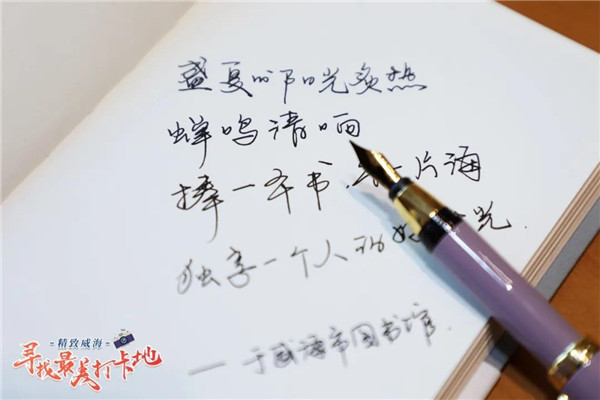 盛夏的阳光炙热
蝉鸣清
捧一本书, 一片海
独享一个人的 光.
——于威海市图书馆.
精致威海
寻找最美打卡地